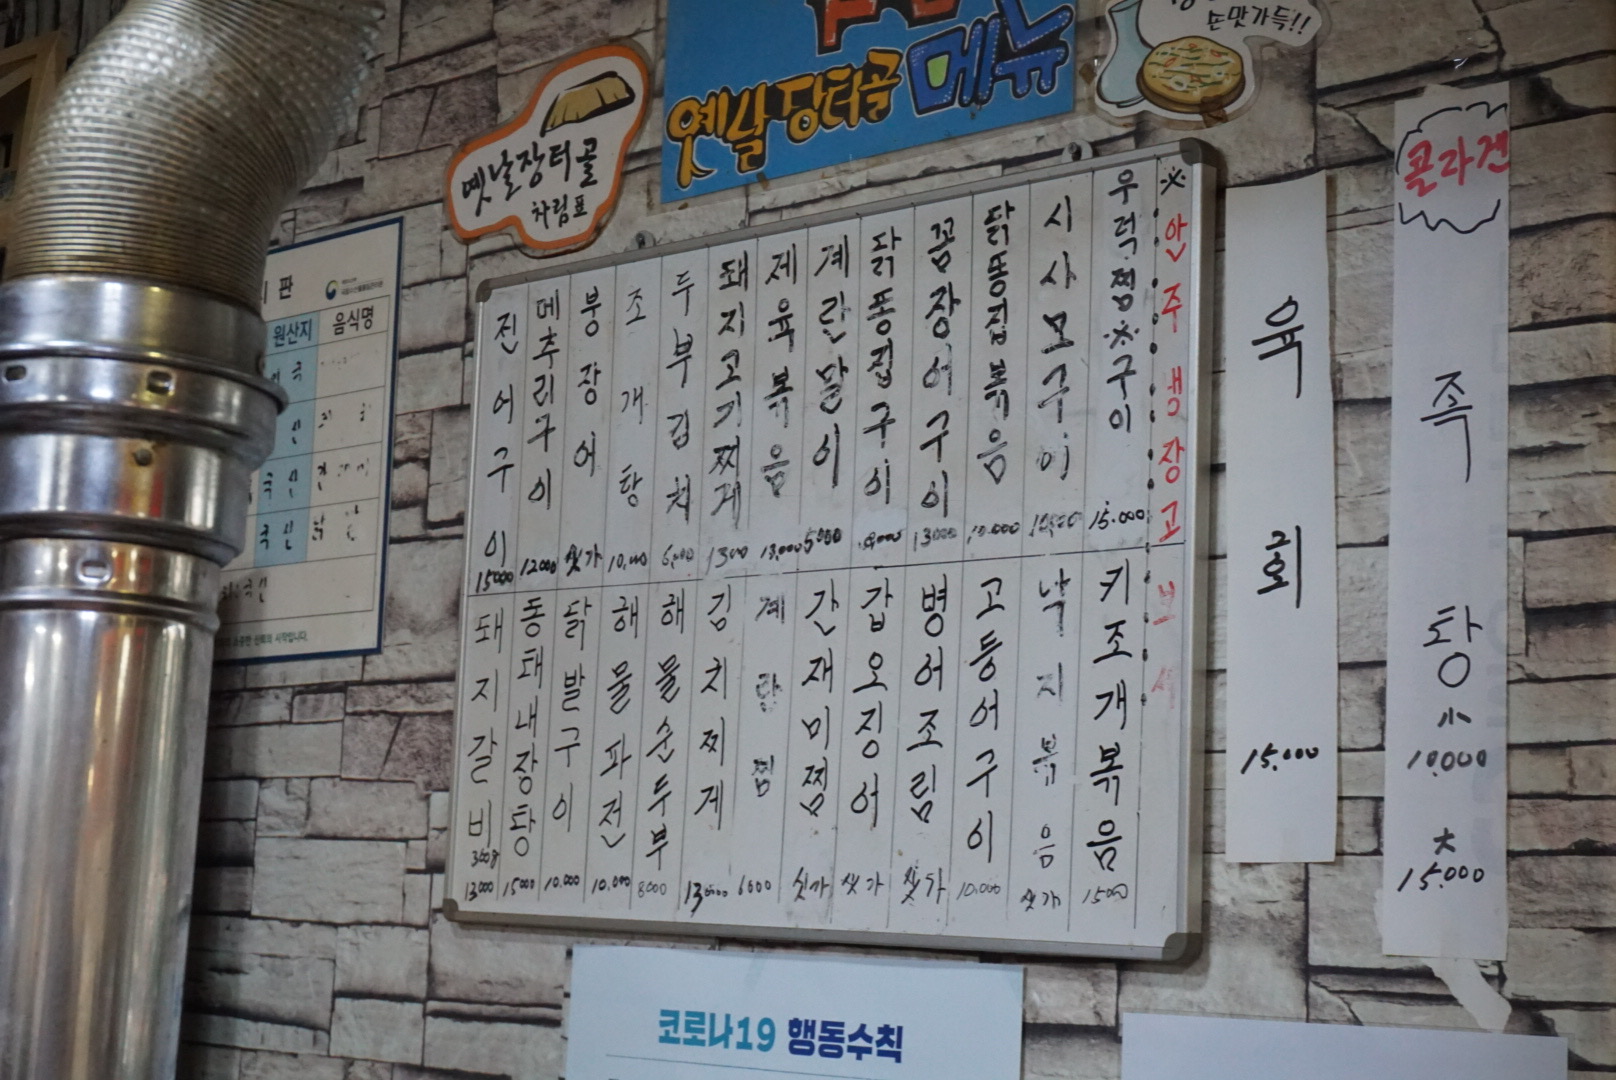 옛날장터골 메뉴
손맛가득!!
옛날장터골
차림표
원산지 음식명
※안주냉장고
우럭찜※구이 15.000
시사모구이
닭똥집볶음 10.000
꼼장어구이 13000
닭똥집구이
계란말이 5000
제육볶음 13,000
돼지고기찌게
두부김치 6,000
조개탕 10,000
붕장어 싯가
메추리구이 12000
전어구이 15000
키조개볶음
낙지볶음 싯가
고등어구이 10.000
병어조림 싯가
갑오징어 싯가
간재미찜 싯가
계란찜 6000
김치찌게 13000
해물순두부 8000
해물파전 10.000
닭발구이 10.000
동태내장탕 15000
돼지갈비 13000
육회 15.000
콜라겐
족탕 小 10.000
大 15.000
코로나19 행동수칙